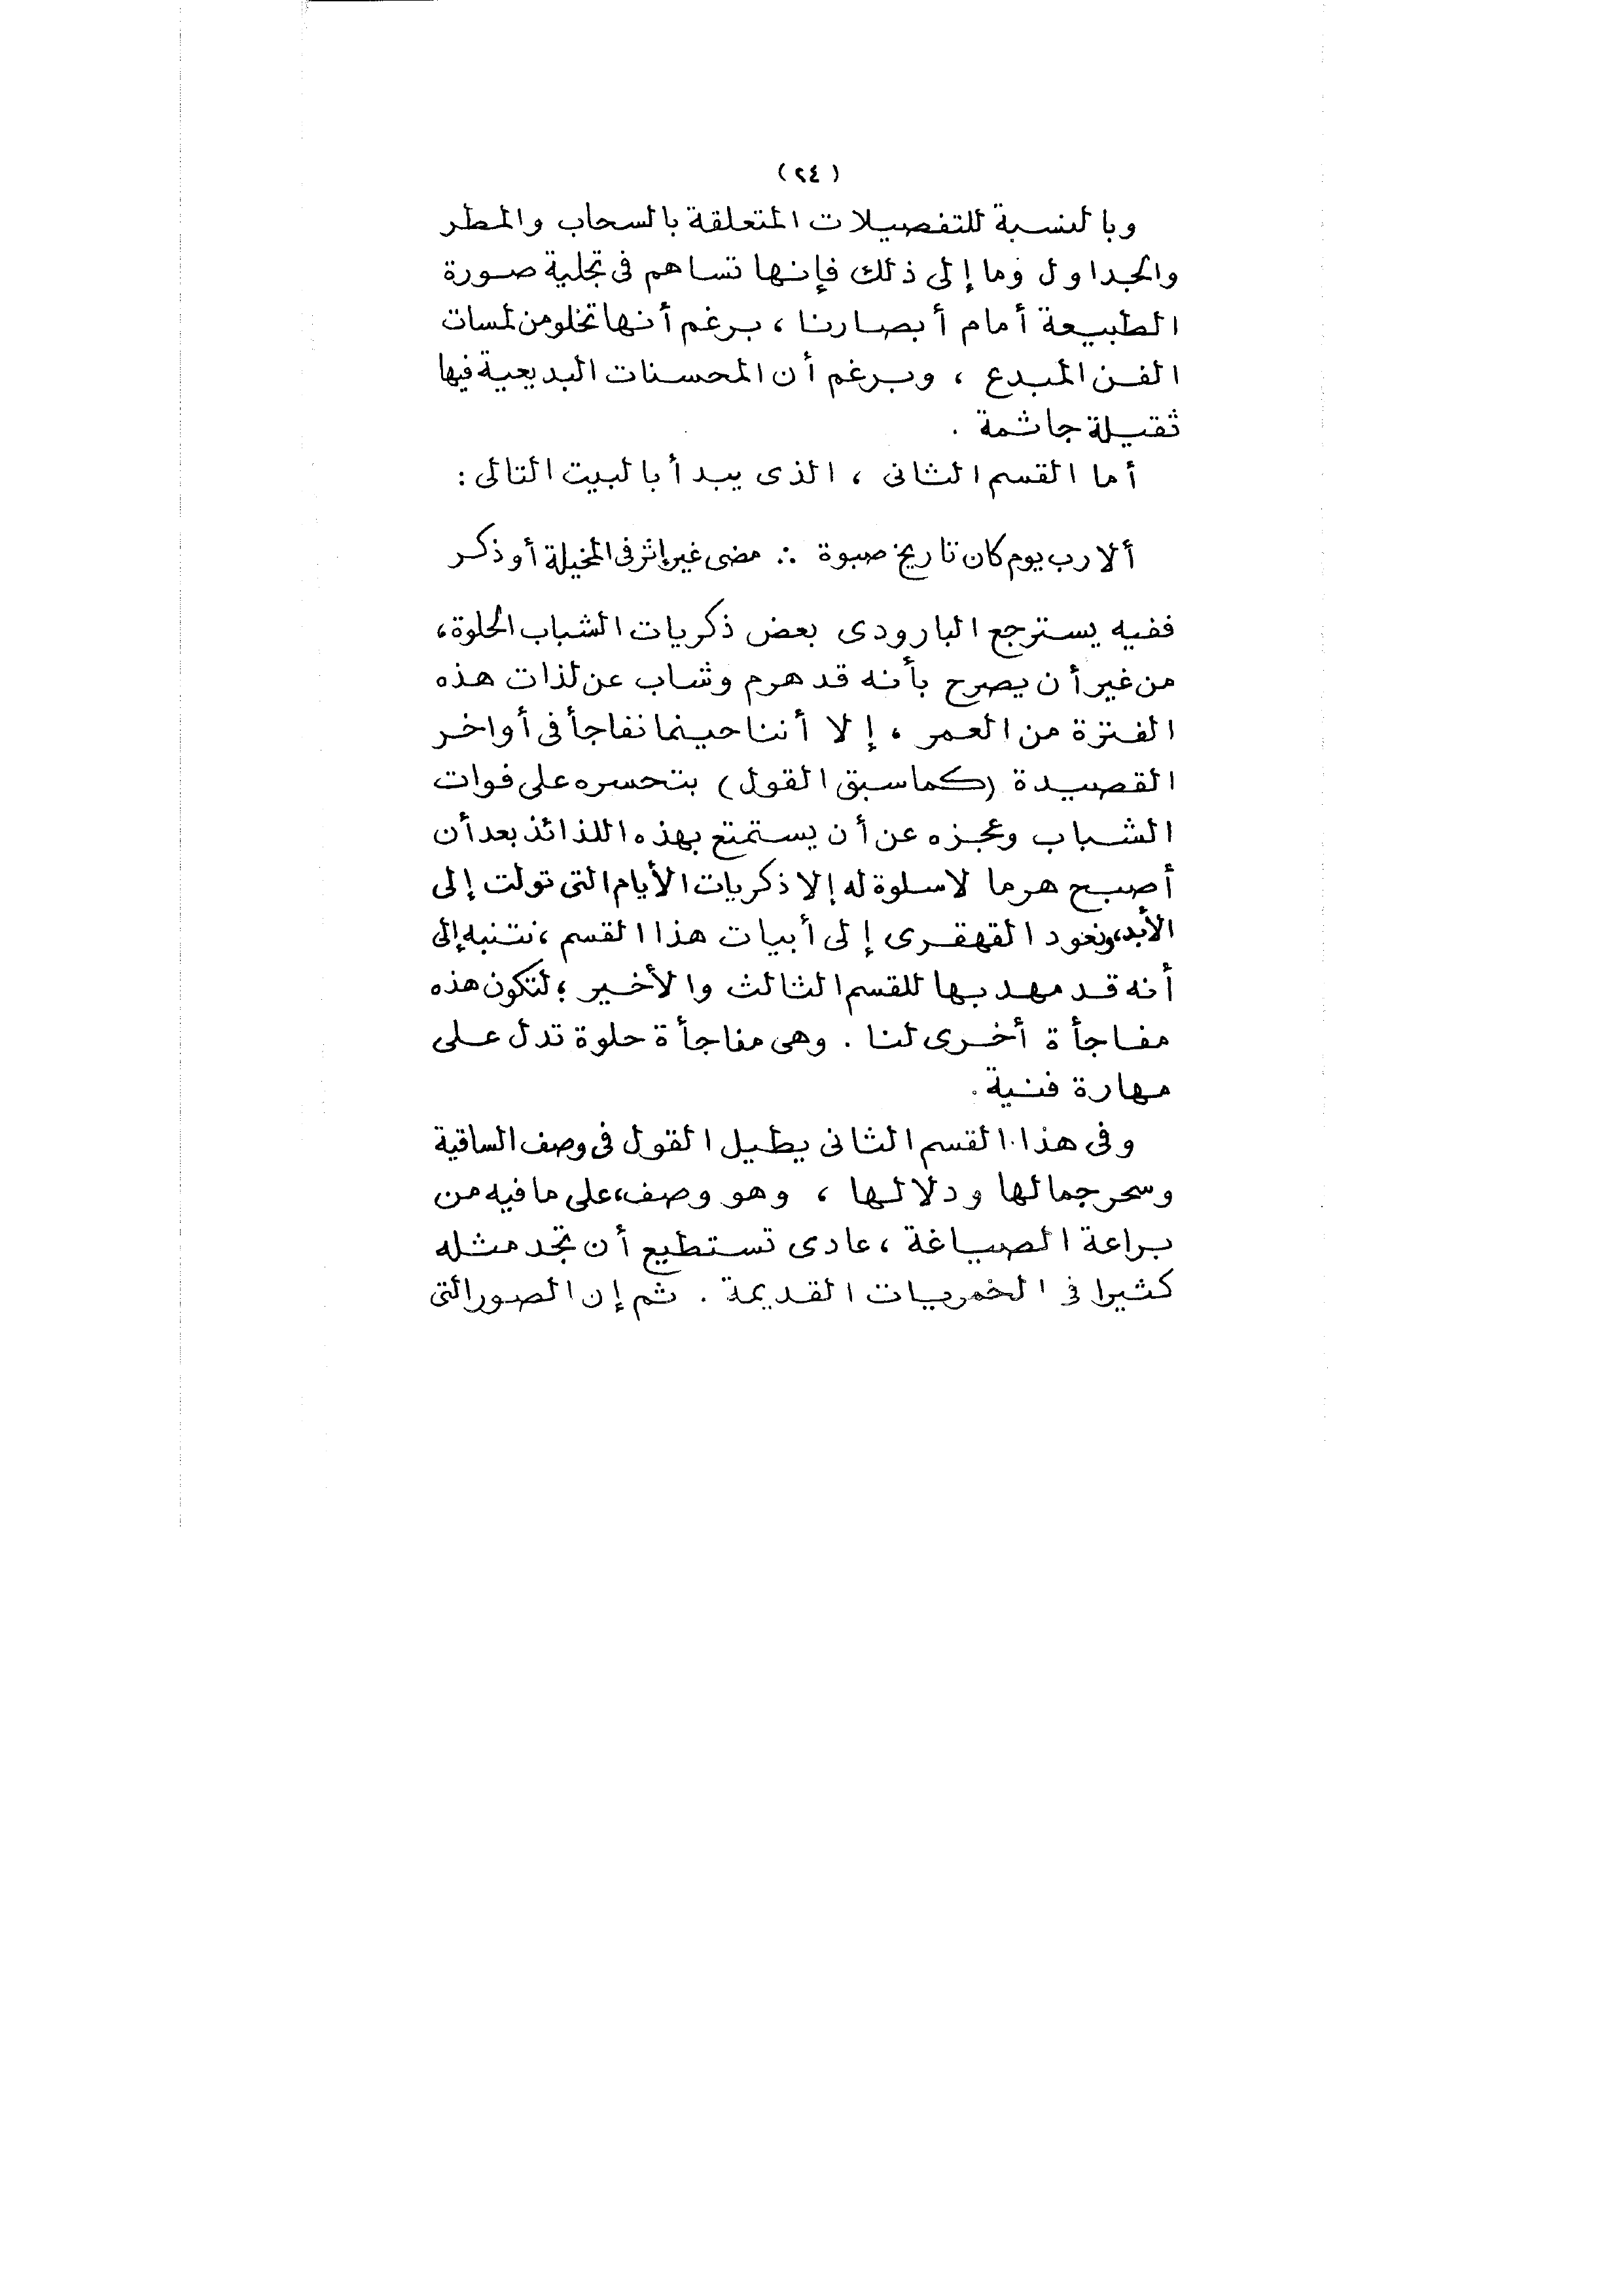 (٢٤)
وبالنسبة للتفصيلات المتعلقة بالسحاب والمطر
والجداول وما إلى ذلك فإنها تساهم فى تجلية صورة
الطبيعة أمام أبصارنا ، برغم أنها تخلو من لمسات
الفن المبدع ، وبرغم أن المحسنات البديعية فيها
ثقيلة جاثمة .
أما القسم الثانى ، الذى يبدأ بالبيت التالى :
ألا رب يوم كان تاريخ صبوة ∴ مضى غير إثر فى المخيلة أو ذكر
ففيه يسترجع البارودى بعض ذكريات الشباب الحلوة ،
من غير أن يصرح بأنه قد هرم وشاب عن لذات هذه
الفترة من العمر ، إلا أننا حينما نفاجأ فى أواخر
القصيدة (كما سبق القول) بتحسره على فوات
الشباب وعجزه عن أن يستمتع بهذه اللذائذ بعد أن
أصبح هرما لا سلوة له إلا ذكريات الأيام التى تولت إلى
الأبد، ونعود القهقرى إلى أبيات هذا القسم ، نتنبه إلى
أنه قد مهد بها للقسم الثالث والأخير ؛ لتكون هذه
مفاجأة أخرى لنا . وهى مفاجأة حلوة تدل على
مهارة فنية .
وفى هذا القسم الثانى يطيل القول فى وصف الساقية
وسحر جمالها ودلالها ، وهو وصف، على ما فيه من
براعة الصياغة ، عادى تستطيع أن تجد مثله
كثيرا فى الخمريات القديمة . ثم إن الصور التى